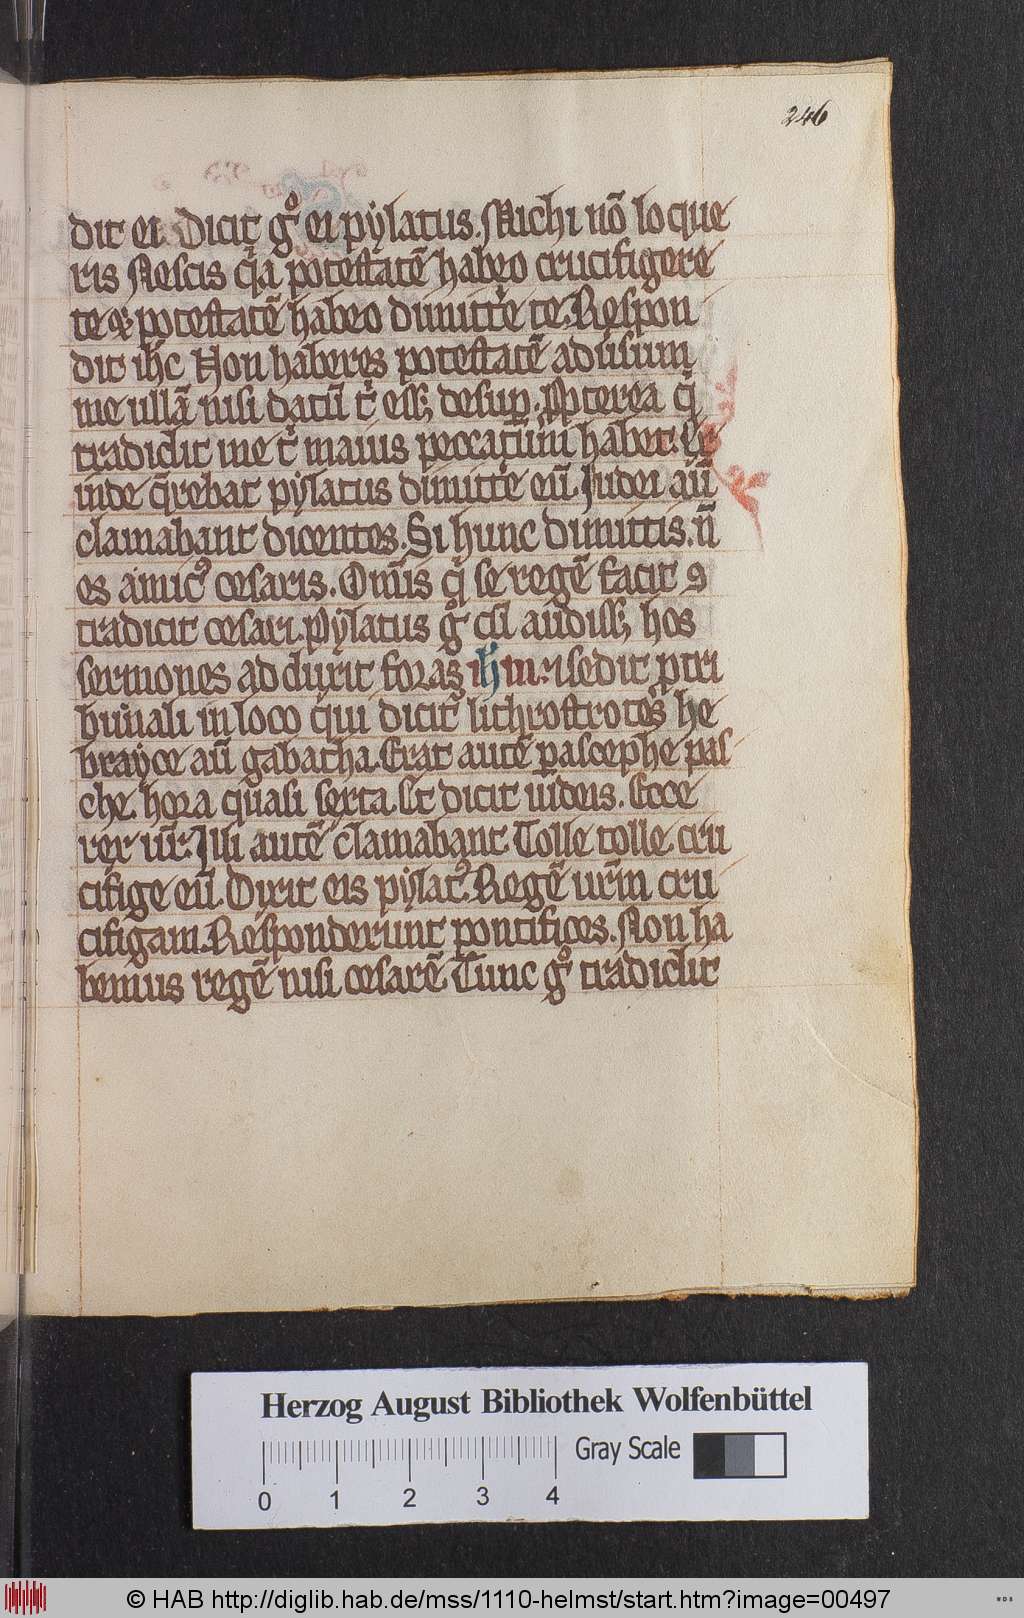 246
dit ei. Dicit gͦ ei pÿlatus. Michi nō loque
ris Nescis qͥa potestatē habeo crucifigere
te ⁊ potestatē habeo dimitte̾ te. Respon
dit ihc Non haberes potestatē adusum
me ullā nisi datū t᷑ ess; desuꝑ. Ꝓpterea qͥ
tradidit me t᷑ maius peccatum habet. Et
inde q̄rebat pylatus dimitte̾ eū. Judei aū
clamabant dicentes. Si hunc dimittis. n̄
es amicꝰ cesaris. Om̄is qͥ se regē facit ꝯ
tradicit cesari. Pÿlatus gͦ cū audiss; hos
sermones adduxit foras ihm: ⁊ sedit ꝓ tri
bunali in loco qui dicit᷑ lithostrotos he
brayce aū gabatha. Erat autē ꝑascephe pas
che hora quasi sexta. Et dicit iudeis. Ecce
rex ur̄. Illi autē clamabant. Tolle tolle cru
cifige eū. Dixit eis pÿlatꝰ. Regē ur̄m cru
cifigam. Responderunt pontifices. Non ha
bemus regē nisi cesarē. Tunc gͦ tradidit
Herzog August Bibliothek Wolfenbüttel
Gray Scale
0 1 2 3 4
© HAB http://diglib.hab.de/mss/1110-helmst/start.htm?image=00497